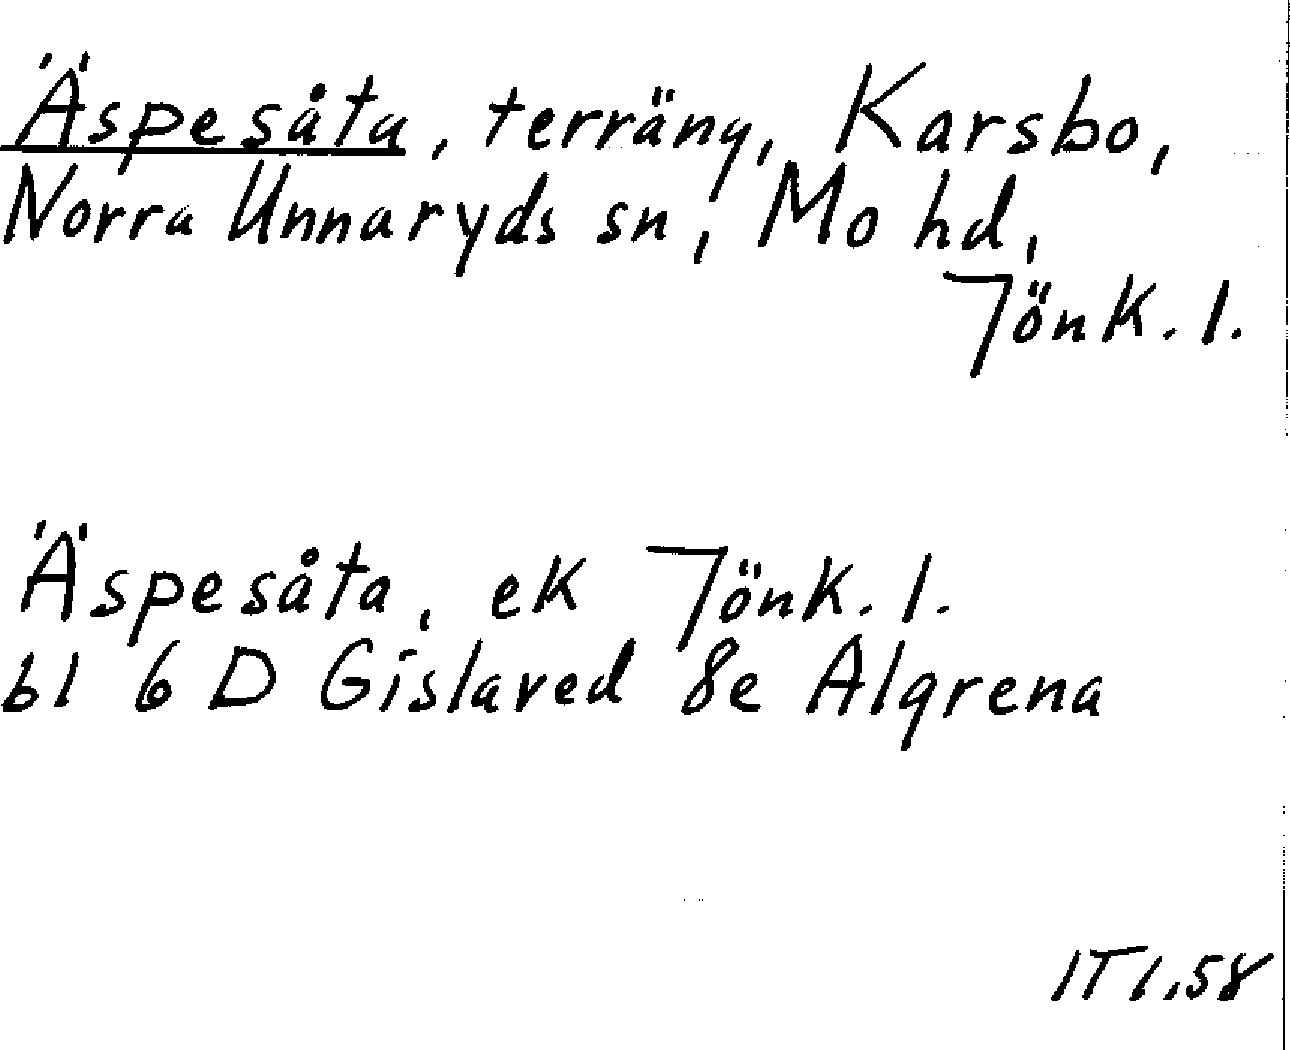 Äspesåta, terräng, Karsbo,
Norra Unnaryds sn, Mo hd,
Jönk. l.
Äspesåta, ek Jönk. l.
bl 6 D Gislaved 8e Algrena